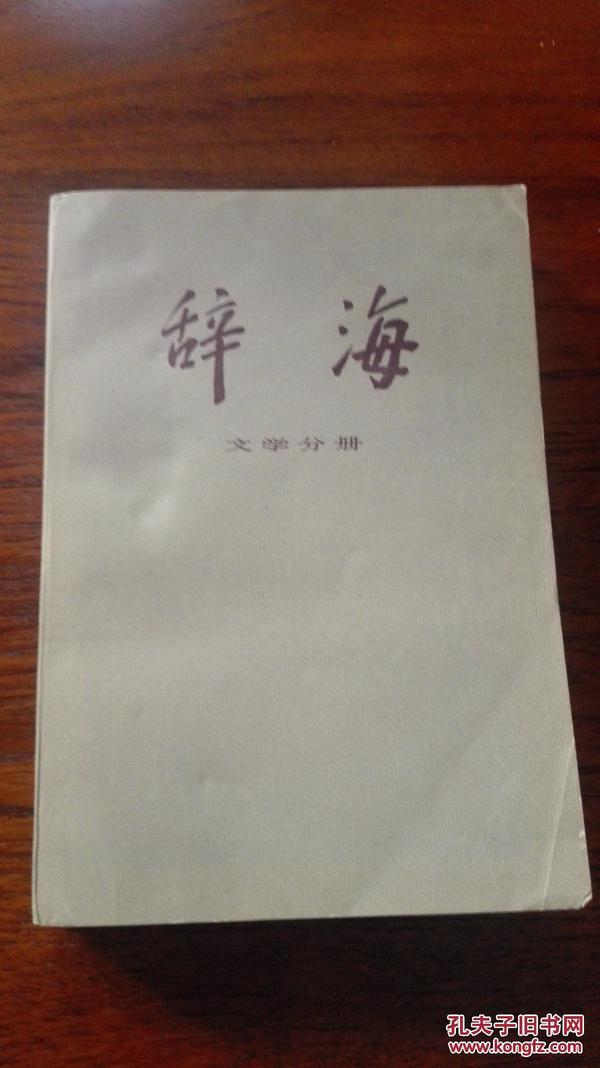 辞海
文学分册
孔夫子旧书网
www.kongfz.com